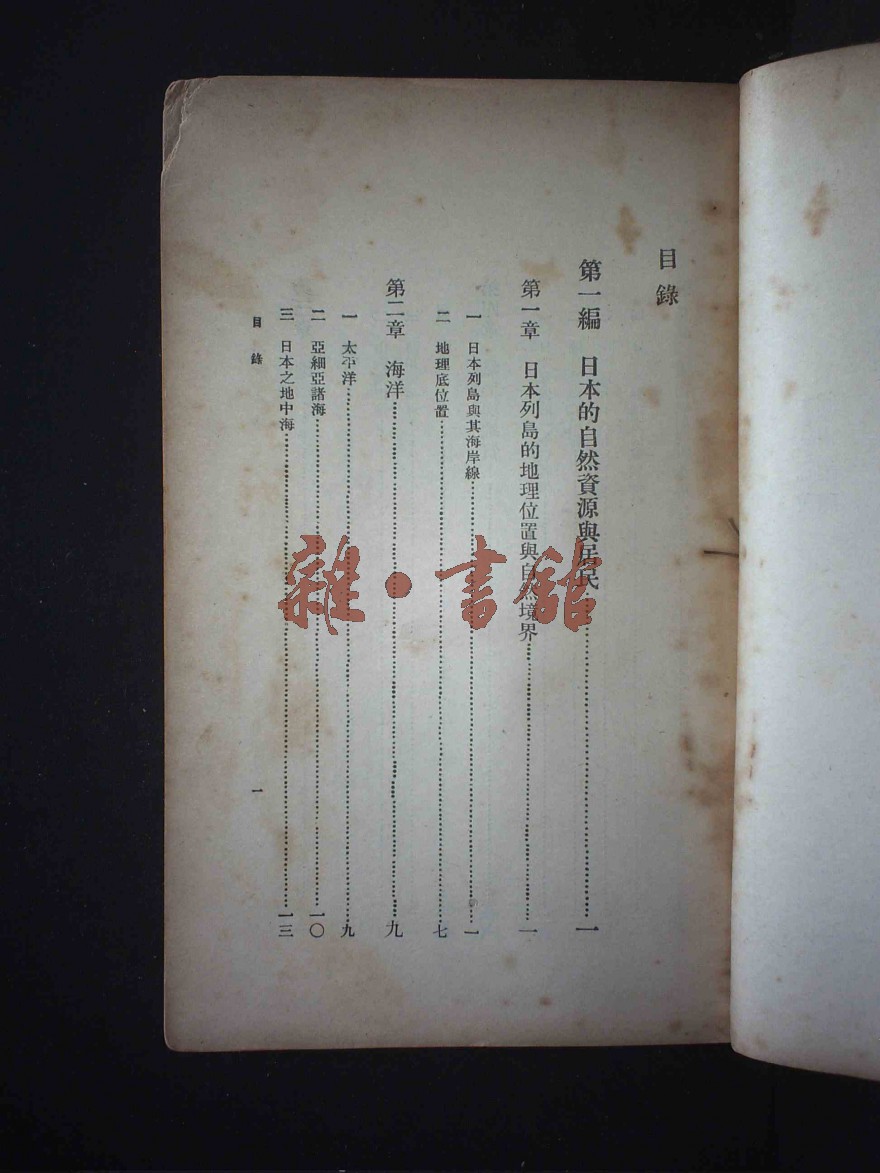 目錄
第一編 日本的自然資源與居民……………………一
第一章 日本列島的地理位置與自然境界……………………一
一 日本列島與其海岸線……………………一
二 地理底位置……………………七
第二章 海洋……………………九
一 太平洋……………………九
二 亞細亞諸海……………………一〇
三 日本之地中海……………………一三
目錄 一
雜·書館